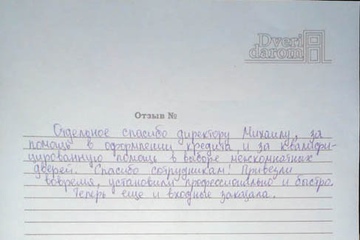 Dveri
darom
Отзыв №
Отдельное спасибо директору Михаилу, за
помощь в оформлении кредита и за квалифи-
цированную помощь в выборе межкомнатных
дверей. Спасибо сотрудникам! Привезли
вовремя, установили профессионально и быстро.
Теперь еще и входные заказала.